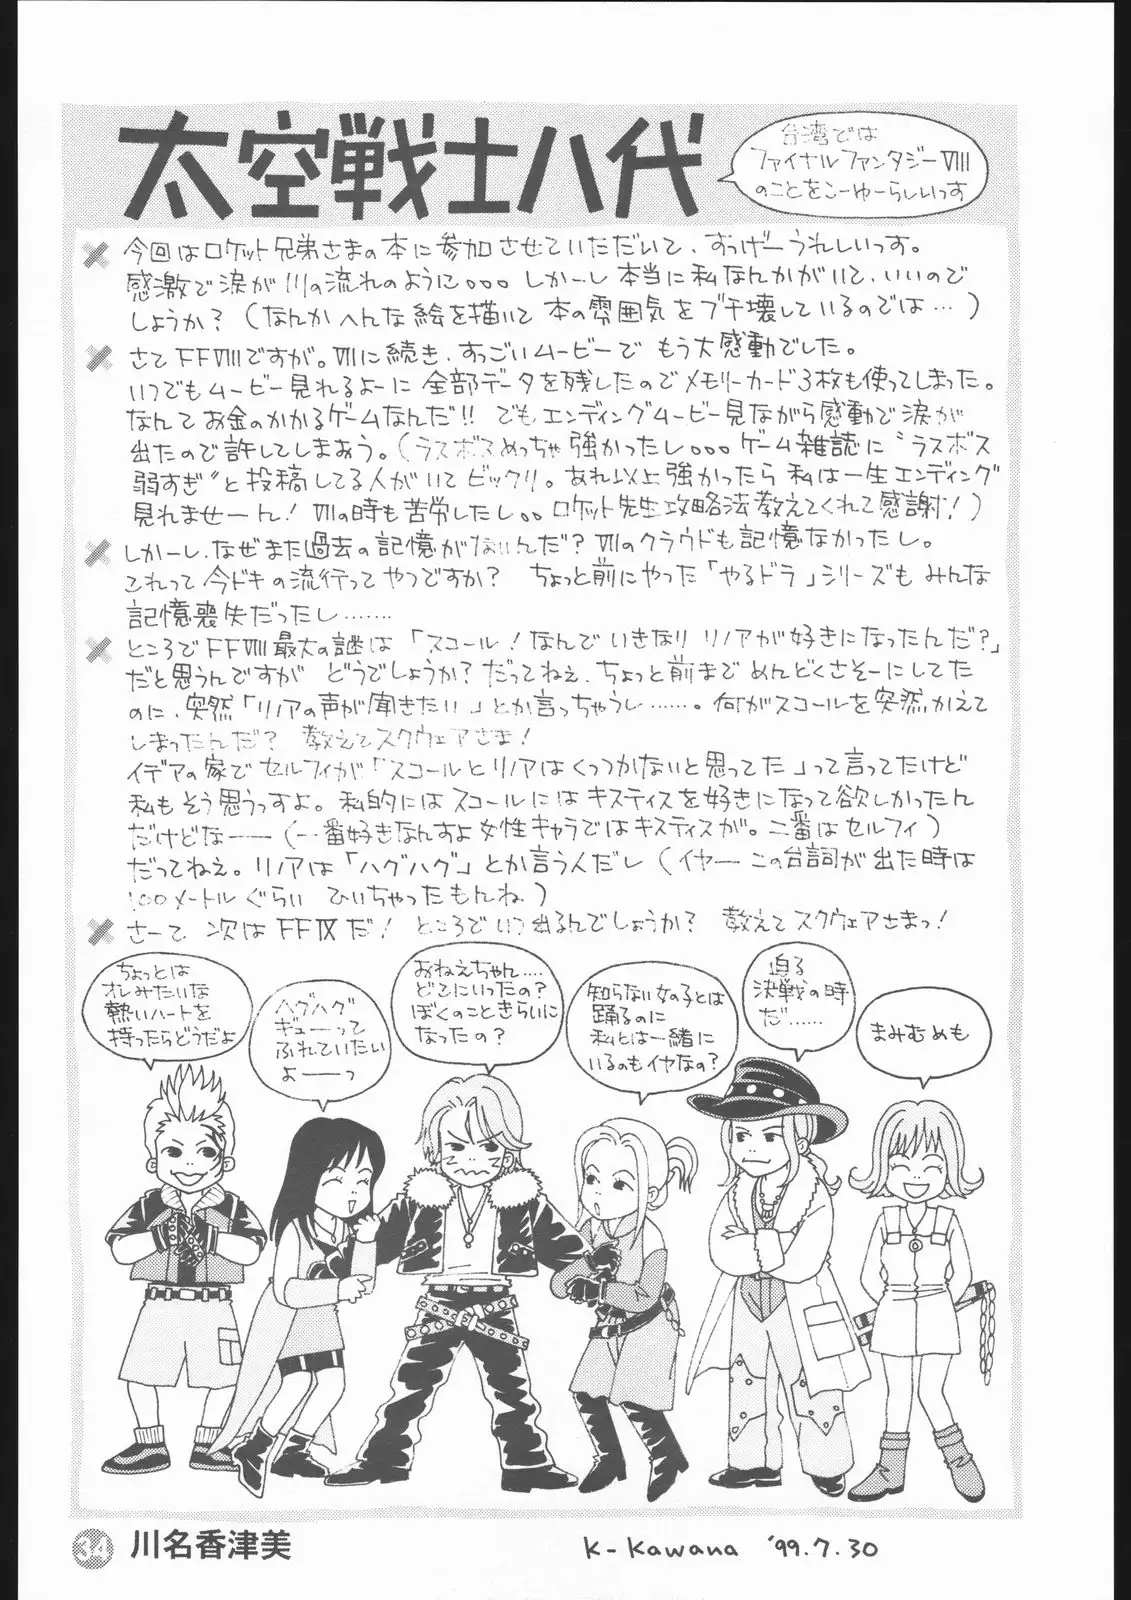 太空戦士八代
台湾では
ファイナルファンタジーVIII
のことをこーゆーらしいっす
今回はロケット兄弟さまの本に参加させていただいて、すっげーうれしいっす。
感激で涙が川の流れのように。。。しかーし本当に私なんかがいて、いいので
しょうか？（なんかへんな絵を描いて本の雰囲気をブチ壊しているのでは…）
さてFFVIIIですが。VIIに続き、すっごいムービーでもう大感動でした。
いつでもムービー見れるよーに全部データを残したのでメモリーカード3枚も使ってしまった。
なんてお金のかかるゲームなんだ!! でもエンディングムービー見ながら感動で涙が
出たので許してしまおう。（ラスボスめっちゃ強かったし。。。ゲーム雑誌に"ラスボス
弱すぎ"と投稿してる人がいてビックリ。あれ以上強かったら私は一生エンディング
見れませーん！VIIの時も苦労したし。。ロケット先生攻略法教えてくれて感謝！）
しかーし、なぜまた過去の記憶がないんだ？VIIのクラウドも記憶なかったし。
これって今ドキの流行ってやつですか？ ちょっと前にやった「やるドラ」シリーズもみんな
記憶喪失だったし……
ところでFFVIII最大の謎は「スコール！なんでいきなりリノアが好きになったんだ？」
だと思うんですがどうでしょうか？だってねぇ、ちょっと前までめんどくさそーにしてた
のに、突然「リノアの声が聞きたい」とか言っちゃうし……。何がスコールを突然かえて
しまったんだ？ 教えてスクウェアさま！
イデアの家でセルフィが「スコールとリノアはくっつかないと思ってた」って言ってたけど
私もそう思うっすよ。私的にはスコールにはキスティスを好きになって欲しかったん
だけどなー――（一番好きなんすよ女性キャラではキスティスが。二番はセルフィ）
だってねぇ。リノアは「ハグハグ」とか言う人だし（イヤーこの台詞が出た時は
100メートルぐらいひいちゃったもんね）
さーて 次はFFIXだ！ ところでいつ出るんでしょうか？ 教えてスクウェアさまっ！
ちょっとは
オレみたいな
熱いハートを
持ったらどうだよ
ハグハグ
ギューって
ふれていたい
よー――っ
おねえちゃん……
どこにいったの？
ぼくのこときらいに
なったの？
知らない女の子とは
踊るのに
私とは一緒に
いるのもイヤなの？
迫る
決戦の時
だ……
まみむめも
34
川名香津美
K-Kawana '99.7.30